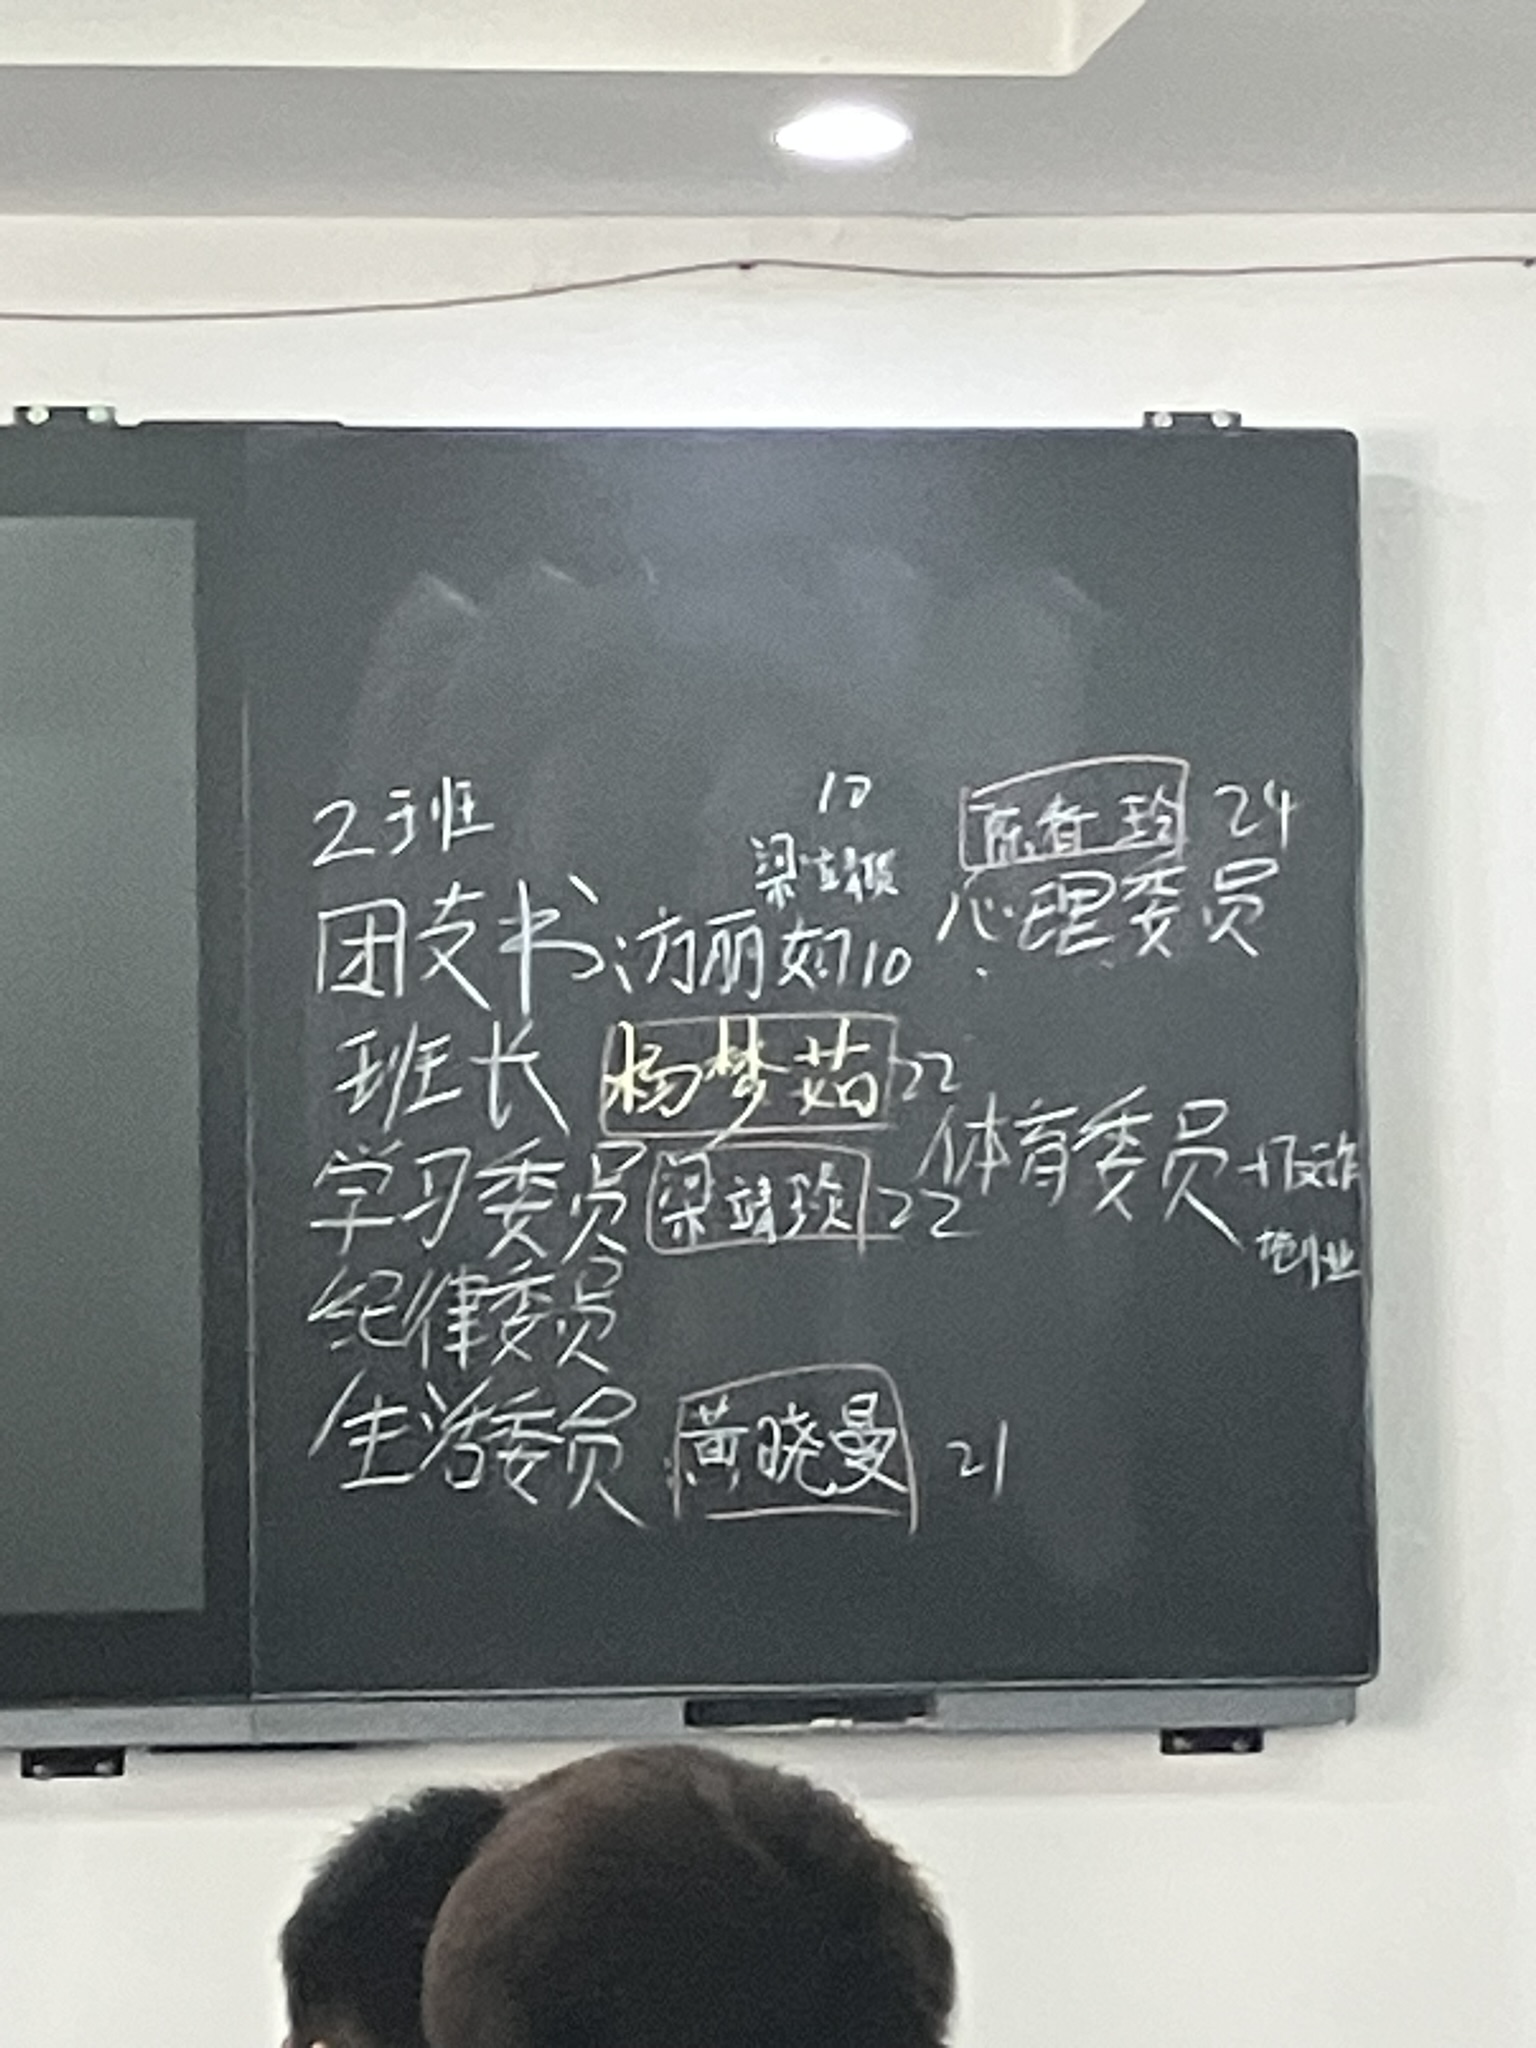 2班
10
团支书 汸丽如10
班长 杨梦茹 22
学习委员 梁靖珍 22
纪律委员
生活委员 黄晓曼 21
陈春玲 24
心理委员
体育委员+反诈
创业